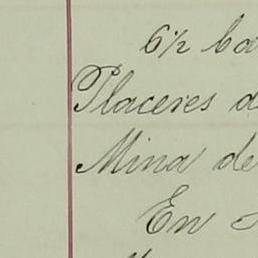 6½ ba
Placeres d
Mina de
En